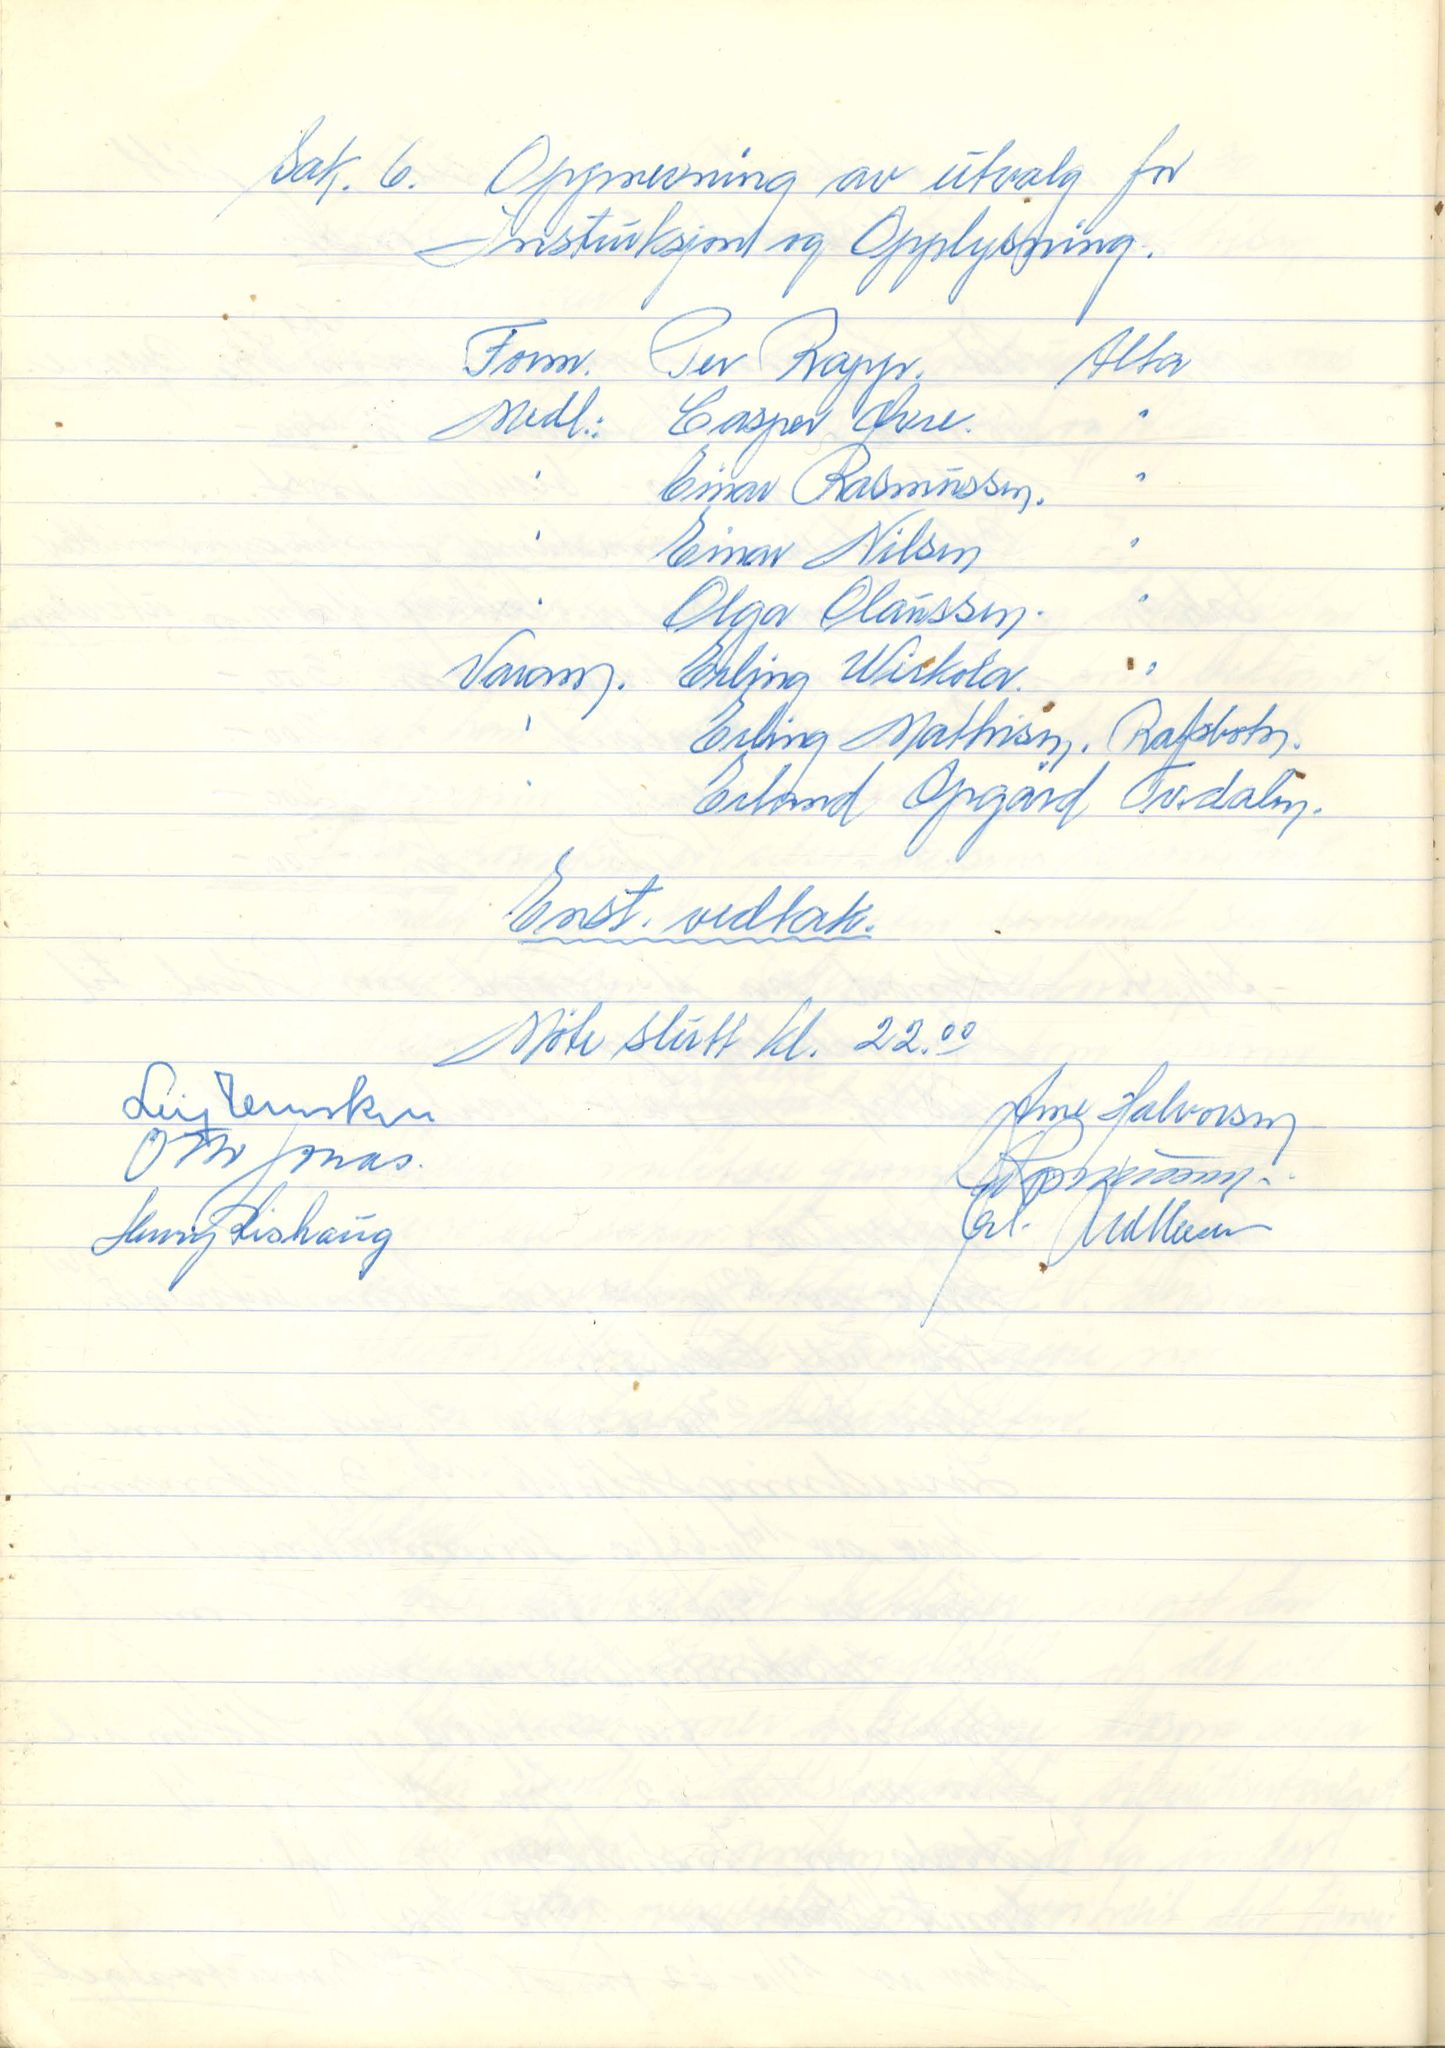 Sak. 6. Oppnevning av utvalg for
Instuksjon og Opplysning.
Form. Per Rapp. Alta
Medl.: Casper "
" Einar Rasmussen. "
" Einar Nilsen "
" Olga Olaussen. "
Varam. Erling Wirkola. "
" Erling Mathisen. Rafsbotn.
" Erland Opgård Tv.dalen.
Enst. vedtak.
Möte slutt kl. 22.00
Arne Halvorsen
Otto Jonas.
Henry Lishaug